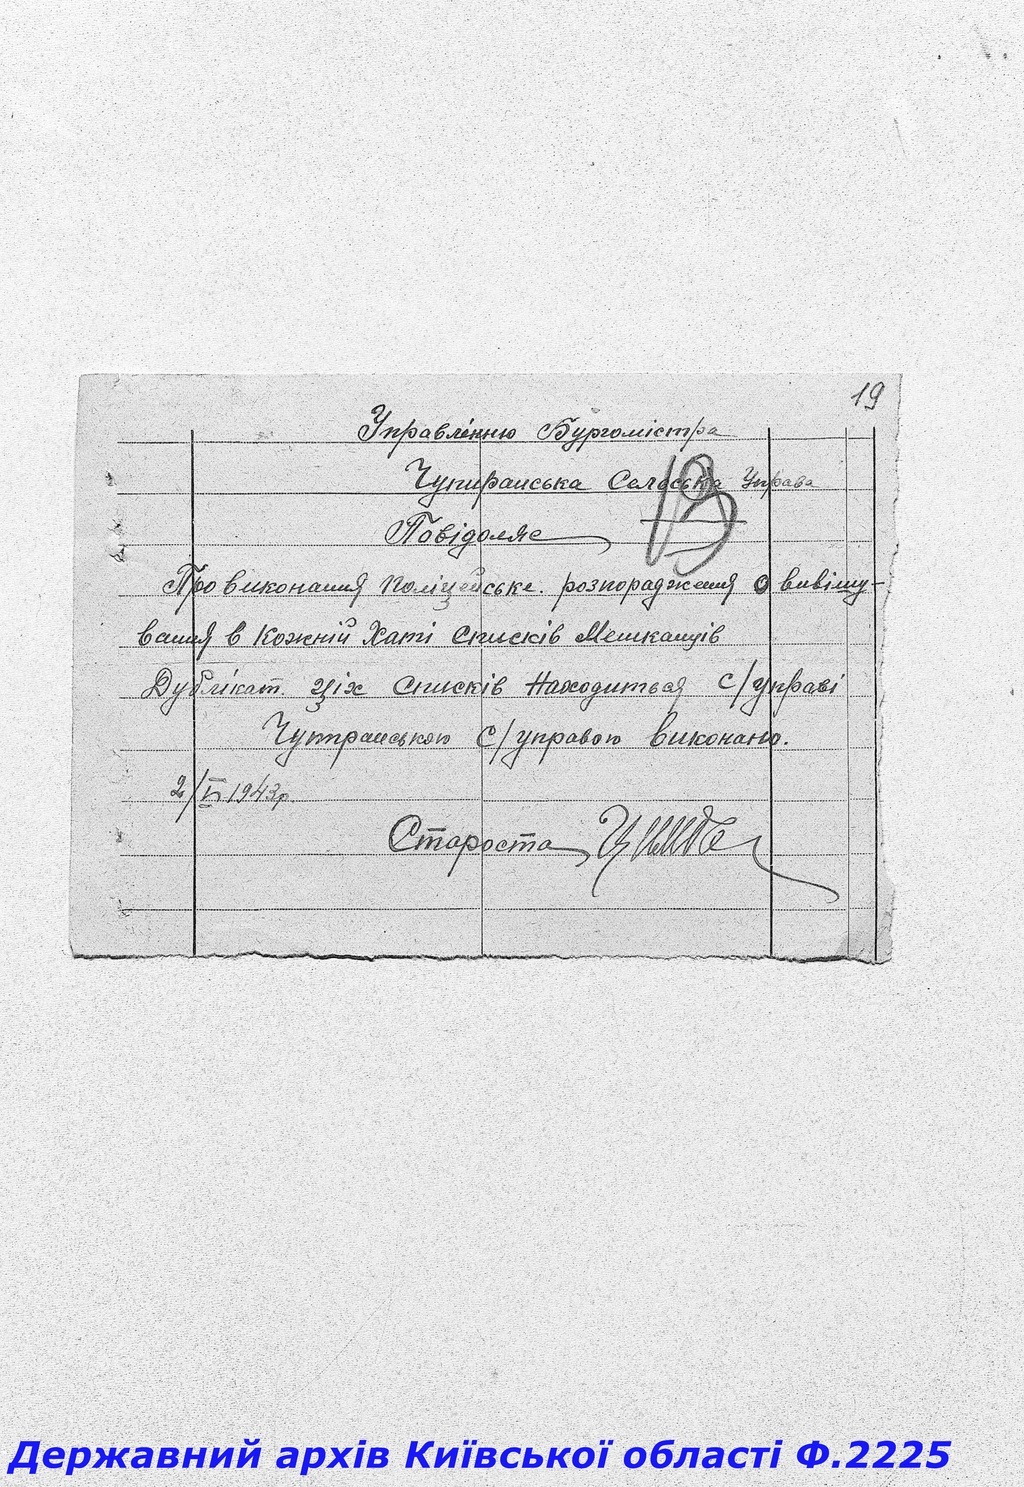 19
Управлінню Бургомістра
Чупираська Сельська Управа
Повідомляє
Про виконання Поліцейське. розпорадження о вивішу-
вання в Кожній Хаті Списків Мешканців
Дублікат. ціх Списків Находиться С/управі
Чупираською С/управою виконано.
2/VI 1943р.
Староста
Державний архів Київської області Ф.2225